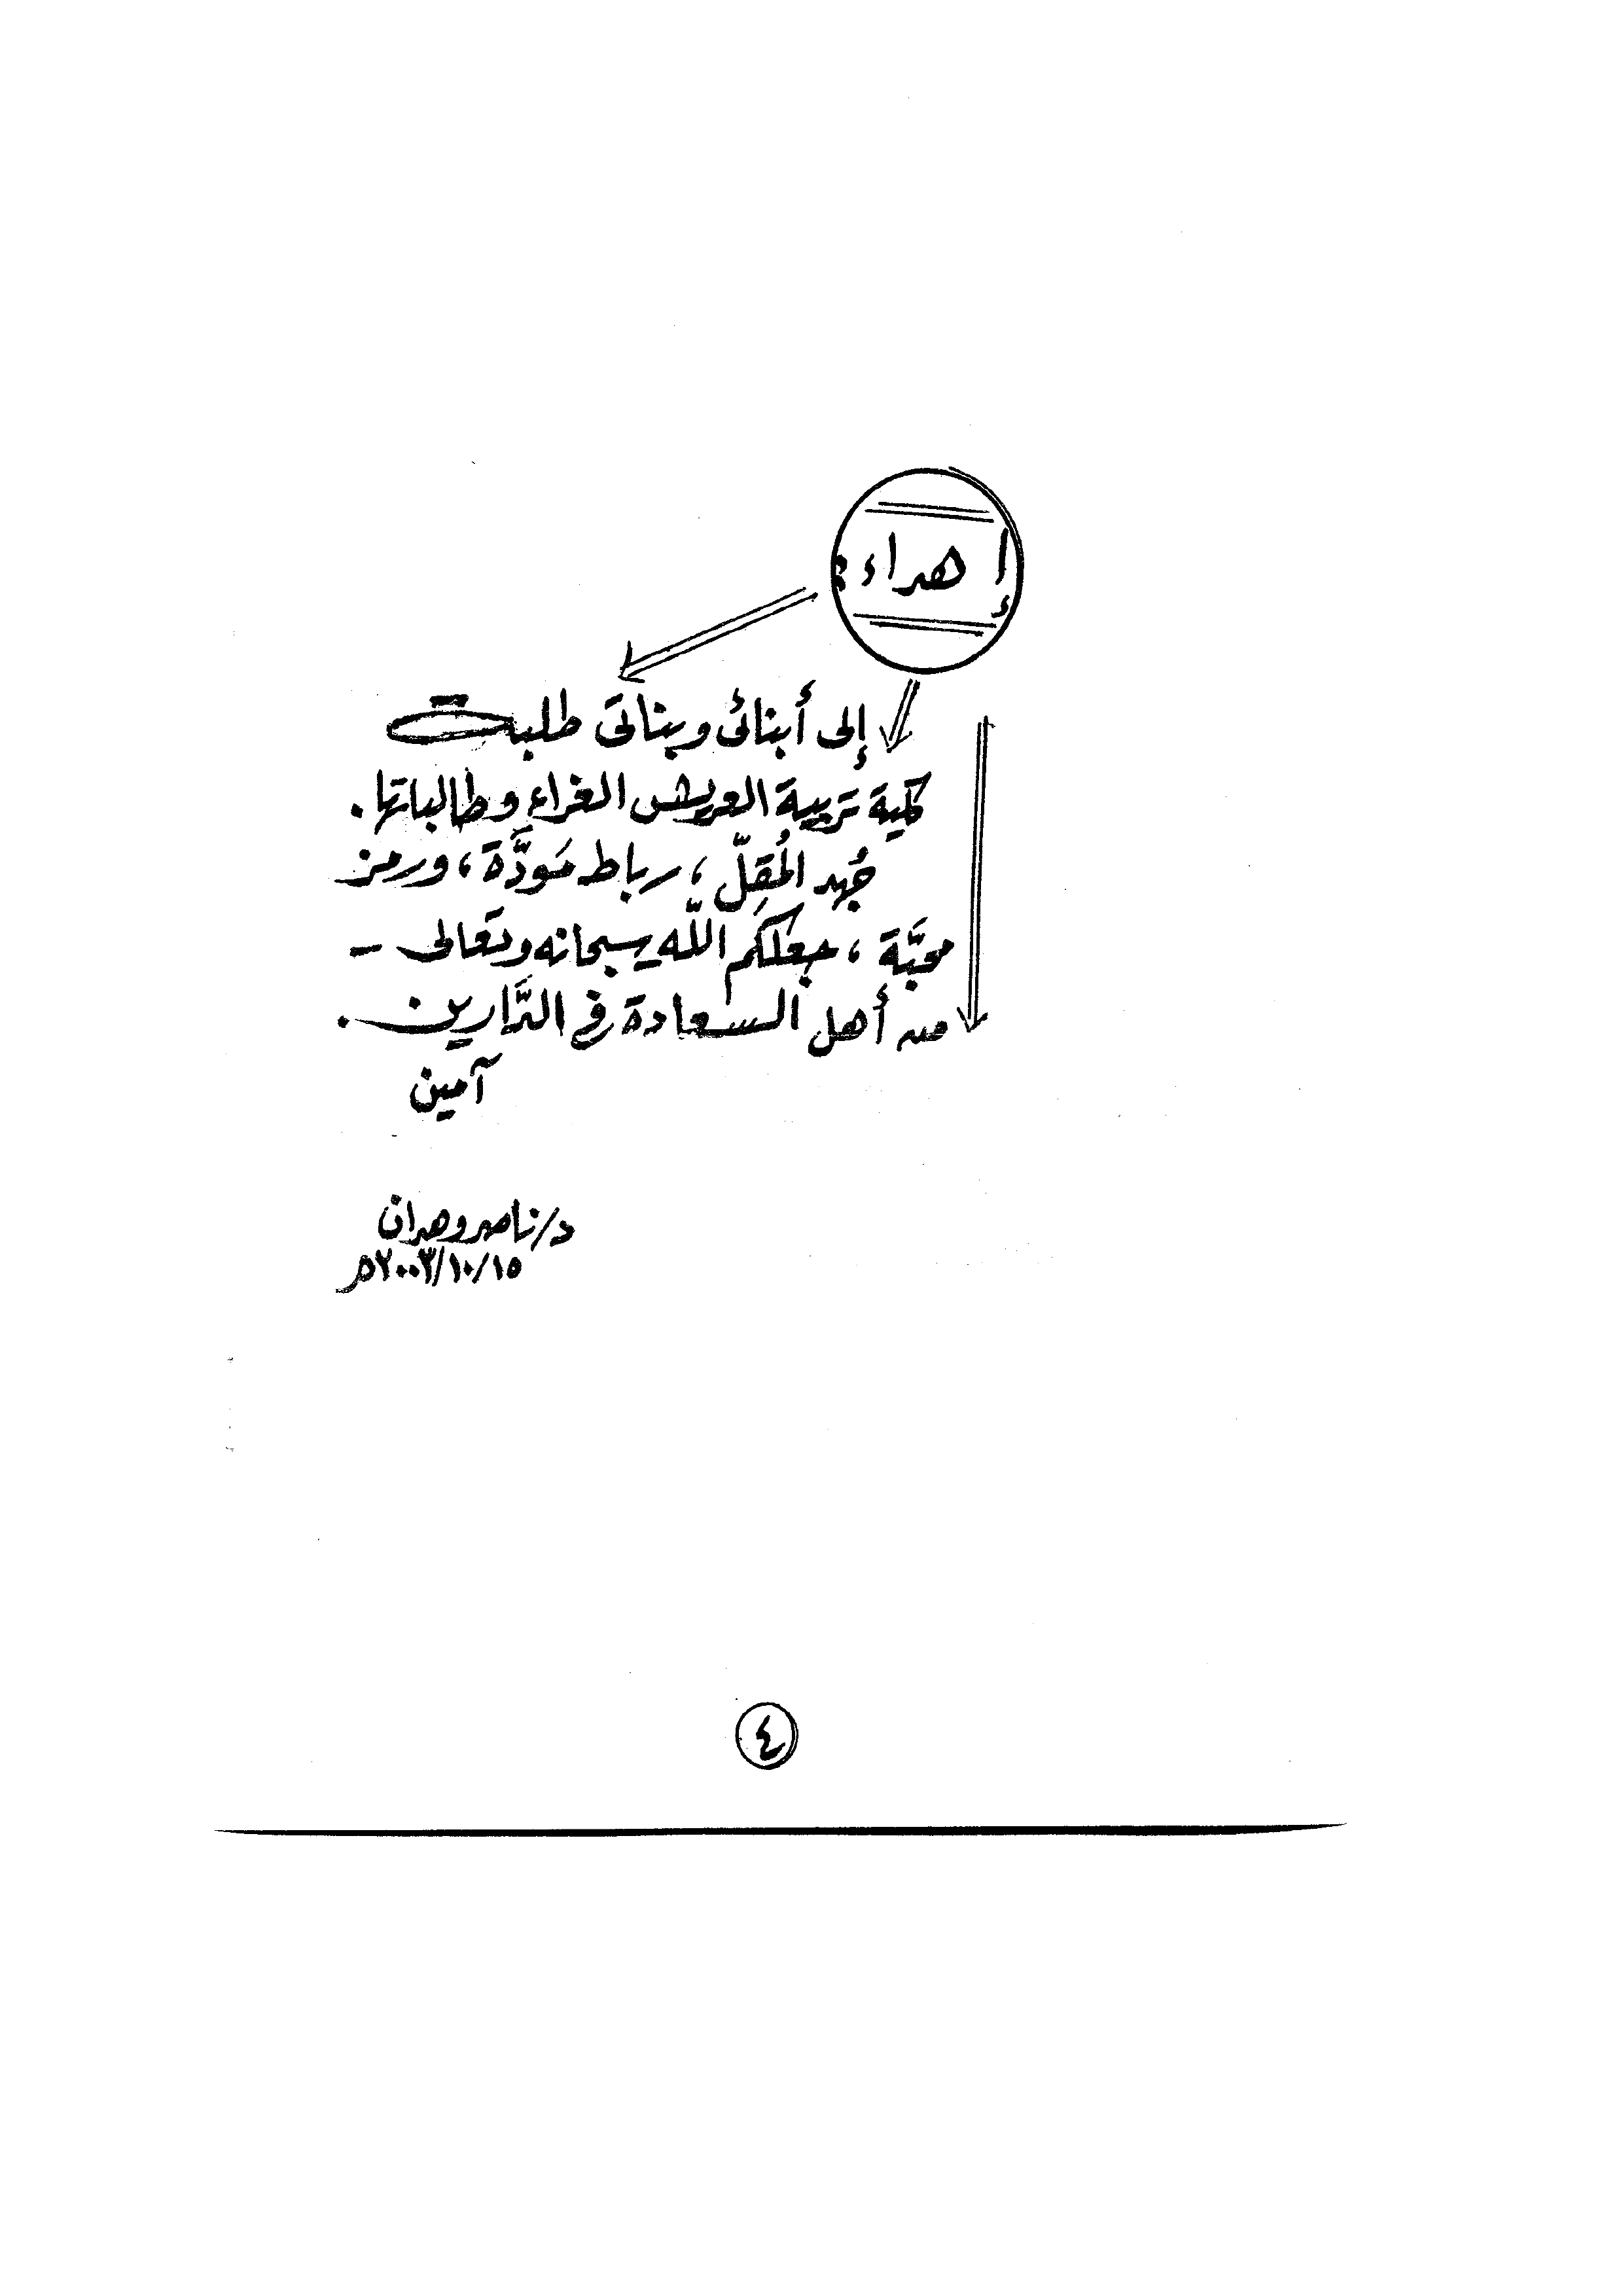 إهداء:
إلى أبنائى وبناتى طلبة
كلية تربية العريش الغراء وطالباتها.
جُهد المُقِلّ، رباط مَودَّة، ورمز
محبَّة، جعلكم اللّه سبحانه وتعالى –
من أهل السعادة فى الدَّارين.
آمين
د/ناصر وهدان
١٥/١٠/٢٠٠٣م
٤